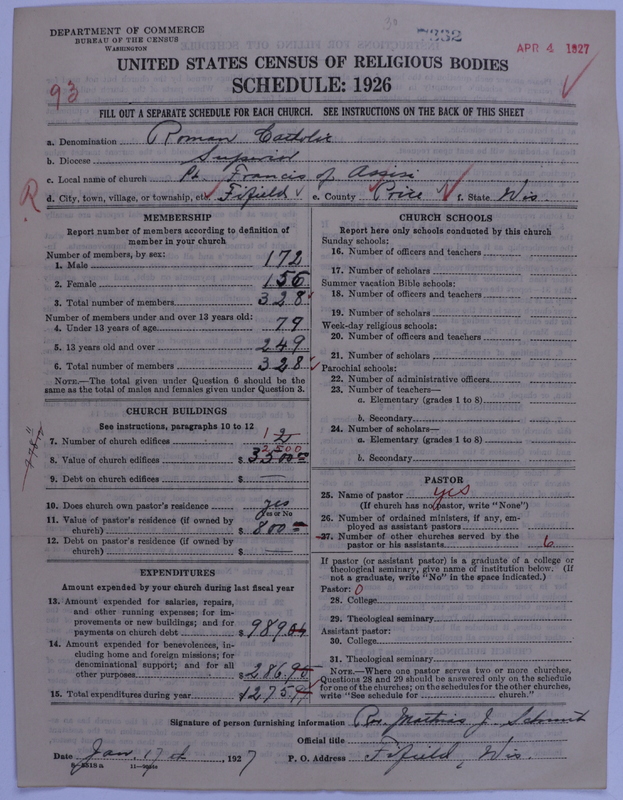 DEPARTMENT OF COMMERCE
BUREAU OF THE CENSUS
WASHINGTON
7332
APR 4 1927
UNITED STATES CENSUS OF RELIGIOUS BODIES
SCHEDULE: 1926
93
FILL OUT A SEPARATE SCHEDULE FOR EACH CHURCH. SEE INSTRUCTIONS ON THE BACK OF THIS SHEET
a. Denomination Roman Catholic
b. Diocese Superior
c. Local name of church Francis of Assisi
R d. City, town, village, or township, etc. Fifield e. County Price f. State Wis
MEMBERSHIP
Report number of members according to definition of
member in your church
Number of members, by sex:
1. Male 172
2. Female 156
3. Total number of members 328
Number of members under and over 13 years old:
4. Under 13 years of age 79
5. 13 years old and over 249
6. Total number of members 328
NOTE.—The total given under Question 6 should be the
same as the total of males and females given under Question 3.
CHURCH BUILDINGS
See instructions, paragraphs 10 to 12
7. Number of church edifices 1 2
2500
8. Value of church edifices $ 3500
9. Debt on church edifices $ —
10. Does church own pastor's residence yes
Yes or No
11. Value of pastor's residence (if owned by
church) $ 800
12. Debt on pastor's residence (if owned by
church) $ —
EXPENDITURES
Amount expended by your church during last fiscal year
13. Amount expended for salaries, repairs,
and other running expenses; for im-
provements or new buildings; and for
payments on church debt $ 989
14. Amount expended for benevolences, in-
cluding home and foreign missions; for
denominational support; and for all
other purposes $ 286
15. Total expenditures during year 1275
CHURCH SCHOOLS
Report here only schools conducted by this church
Sunday schools:
16. Number of officers and teachers
17. Number of scholars
Summer vacation Bible schools:
18. Number of officers and teachers
19. Number of scholars
Week-day religious schools:
20. Number of officers and teachers
21. Number of scholars
Parochial schools:
22. Number of administrative officers
23. Number of teachers—
a. Elementary (grades 1 to 8)
b. Secondary
24. Number of scholars—
a. Elementary (grades 1 to 8)
b. Secondary
PASTOR
25. Name of pastor yes
(If church has no pastor, write "None")
26. Number of ordained ministers, if any, em-
ployed as assistant pastors
27. Number of other churches served by the
pastor or his assistants 6
If pastor (or assistant pastor) is a graduate of a college or
theological seminary, give name of institution below. (If
not a graduate, write "No" in the space indicated.)
Pastor: 0
28. College
29. Theological seminary
Assistant pastor:
30. College
31. Theological seminary
NOTE.—Where one pastor serves two or more churches,
Questions 28 and 29 should be answered only on the schedule
for one of the churches; on the schedules for the other churches,
write "See schedule for church."
Signature of person furnishing information Rev. Mathias J. Schmit
Official title
Date Jan. 17th, 1927 P. O. Address Fifield, Wis.